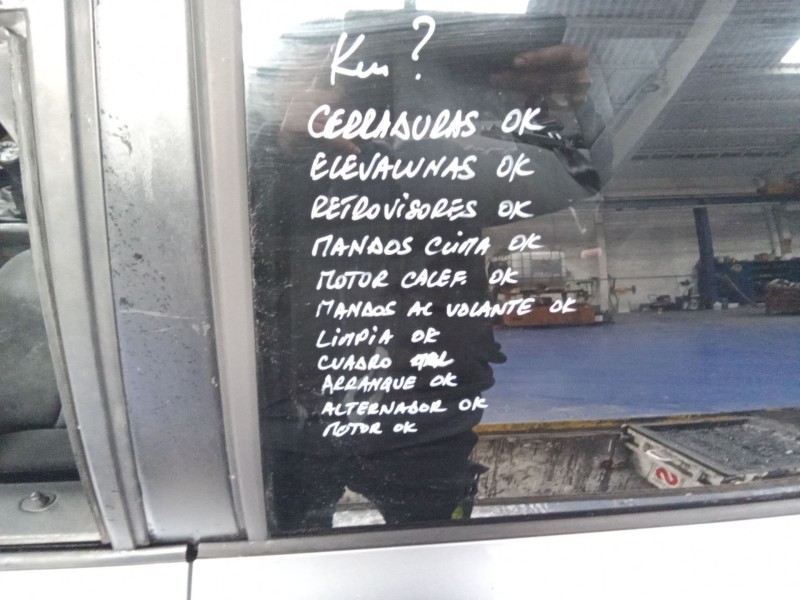 Km ?
CERRADURAS OK
ELEVALUNAS OK
RETROVISORES OK
MANDOS CLIMA OK
MOTOR CALEF. OK
MANDOS AL VOLANTE OK
LIMPIA OK
CUADRO
ARRANQUE OK
ALTERNADOR OK
MOTOR OK